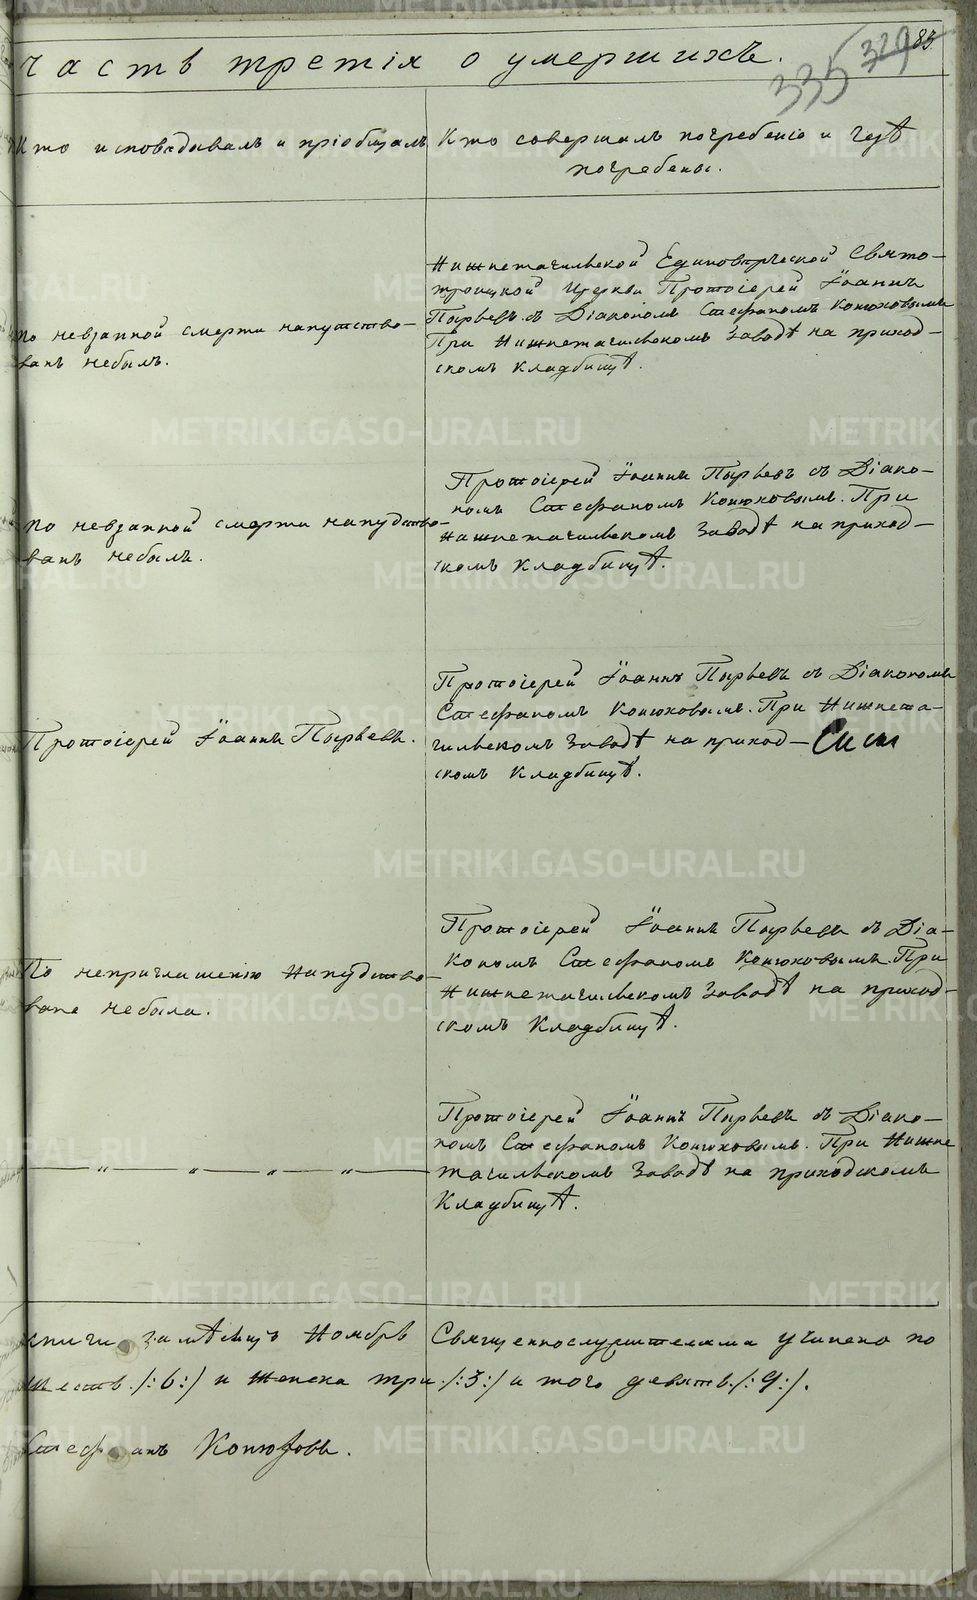 часть третія о умершихъ.
335 329 83.
Кто исповѣдывалъ и пріобщалъ
Кто совершалъ погребеніе и гдѣ
погребены.
По невзапной смерти напутство-
ванъ небылъ.
Нижнетагильской Единовѣрческой Свято-
троицкой Церкви Протоіерей Іоаннъ
Пырьевъ съ Діакономъ Стефаномъ Конюховымъ
При Нижнетагильскомъ Заводѣ на приход-
скомъ кладбищѣ.
По невзапной смерти напутство-
ванъ небылъ.
Протоіерей Іоаннъ Пырьевъ съ Діако-
номъ Стефаномъ Конюховымъ. При
Нижнетагильскомъ Заводѣ на приход-
скомъ кладбищѣ.
Протоіерей Іоаннъ Пырьевъ.
Протоіерей Іоаннъ Пырьевъ съ Діакономъ
Стефаномъ Конюховымъ. При Нижнета-
гильскомъ Заводѣ на приход-
скомъ Кладбищѣ.
По неприглашенію напутство-
вана небыла.
Протоіерей Іоаннъ Пырьевъ съ Діа-
кономъ Стефаномъ Конюховымъ При
Нижнетагильскомъ Заводѣ на приход-
скомъ Кладбищѣ.
—„—„—„—„—
Протоіерей Іоаннъ Пырьевъ съ Діако-
номъ Стефаномъ Конюховымъ. При Нижне
тагильскомъ Заводѣ на приходскомъ
Кладбищѣ.
книги за мѣсяцъ Ноябрь Священнослужителями учинено по
шесть /:6:/ и женска три /:3:/ и того девять /:9:/.
Стефанъ Конюховъ.
METRIKI.GASO-URAL.RU